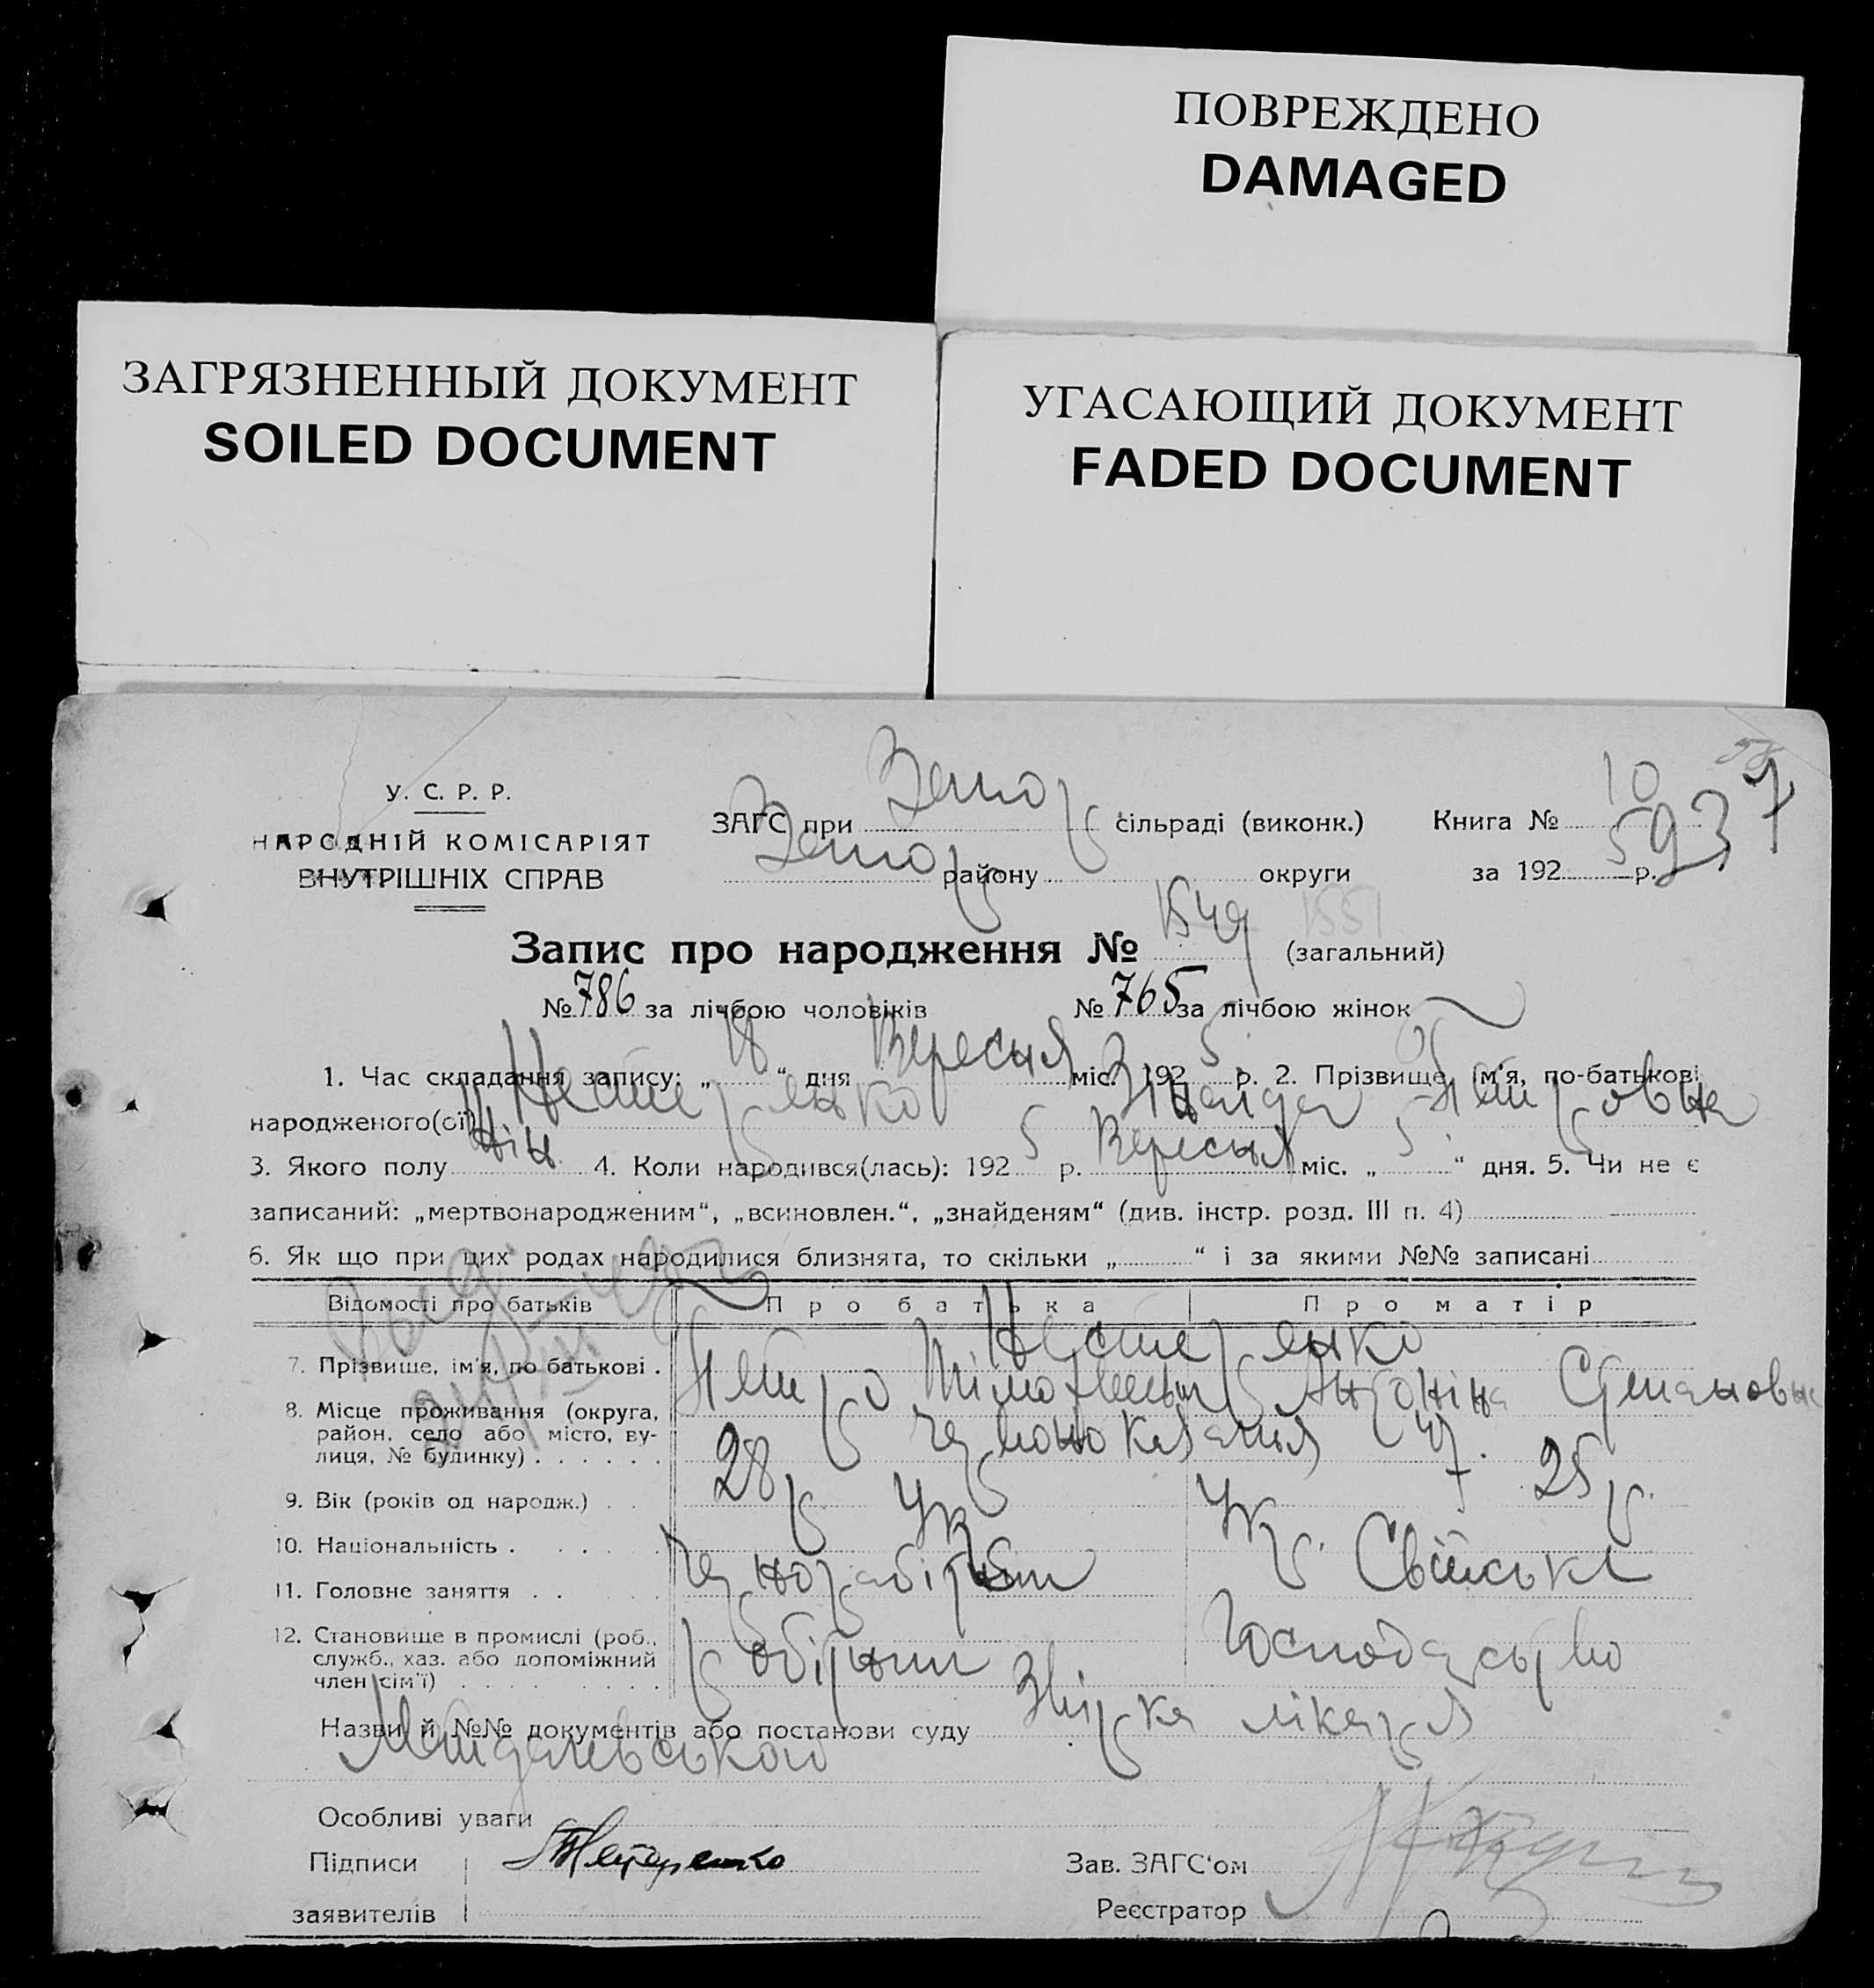 ПОВРЕЖДЕНО
DAMAGED
ЗАГРЯЗНЕННЫЙ ДОКУМЕНТ
SOILED DOCUMENT
УГАСАЮЩИЙ ДОКУМЕНТ
FADED DOCUMENT
У. С. Р. Р.
НАРОДНІЙ КОМІСАРІЯТ
ВНУТРІШНІХ СПРАВ
ЗАГС при Запор сільраді (виконк.) Книга № 10
Запор району округи за 192 5 р. 937
Запис про народження № 1549 1551 (загальний)
№ 786 за лічбою чоловіків № 765 за лічбою жінок
1. Час складання запису: „ 18 “ дня Вересня міс. 192 5 р. 2. Прізвище, ім'я, по-батькові
народженого(ої) Нестеренко Зінаїда Петровна
3. Якого полу жін. 4. Коли народився(лась): 192 5 р. Вересня міс. „ 5 “ дня. 5. Чи не є
записаний: „мертвонародженим“, „всиновлен.“, „знайденям“ (див. інстр. розд. III п. 4)
6. Як що при цих родах народилися близнята, то скільки „ “ і за якими №№ записані
Відомості про батьків Про батька Про матір
Нестеренко
7. Прізвище, ім'я, по батькові . Петро Антоніна Степановна
8. Місце проживання (округа,
район, село або місто, ву-
лиця, № будинку) . . . . . . 47.
9. Вік (років од народж.) . . 28 р. 25 р.
10. Національність . . . . . . Укр Укр.
11. Головне заняття . . . . . чорноробітник Свійське
12. Становище в промислі (роб.,
служб., хаз. або допоміжний
член сім'ї) . . . . . . . . робітник господарство
Назви й №№ документів або постанови суду лікаря
Особливі уваги
Підписи Нестеренко Зав. ЗАГС'ом
заявителів Реєстратор